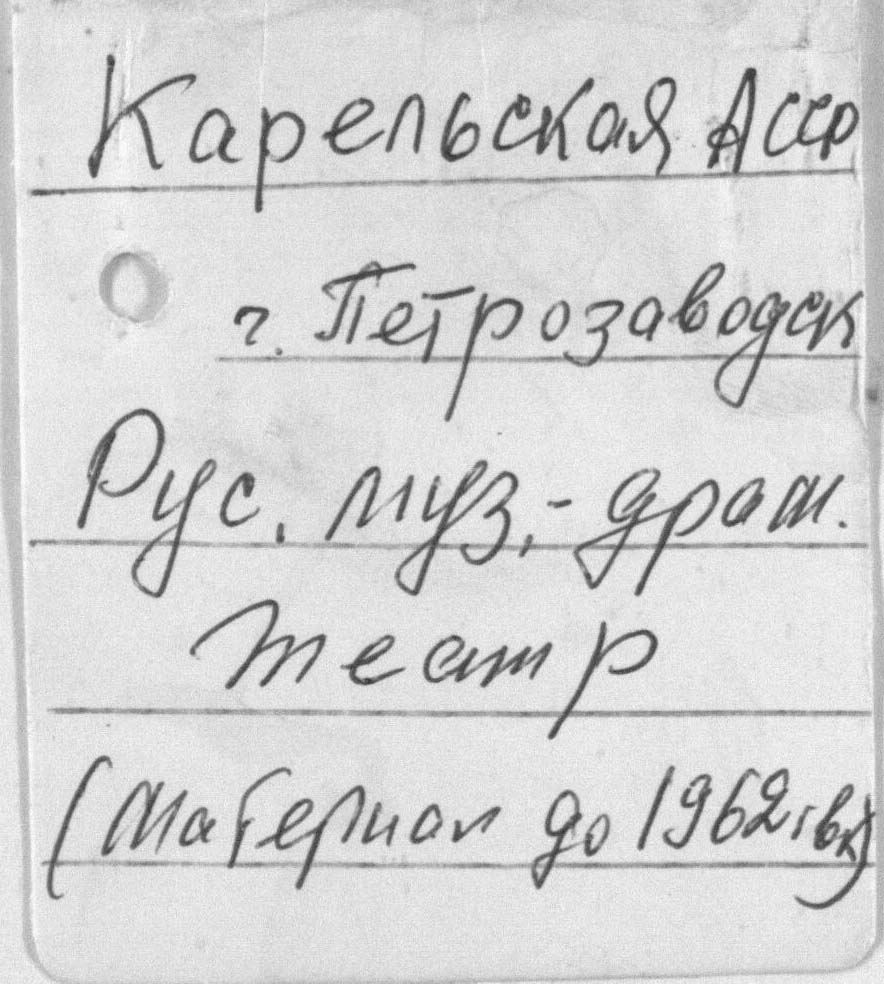 Карельская АССР
г. Петрозаводск
Рус. муз.-драм.
театр
(материал до 1962г. вк)